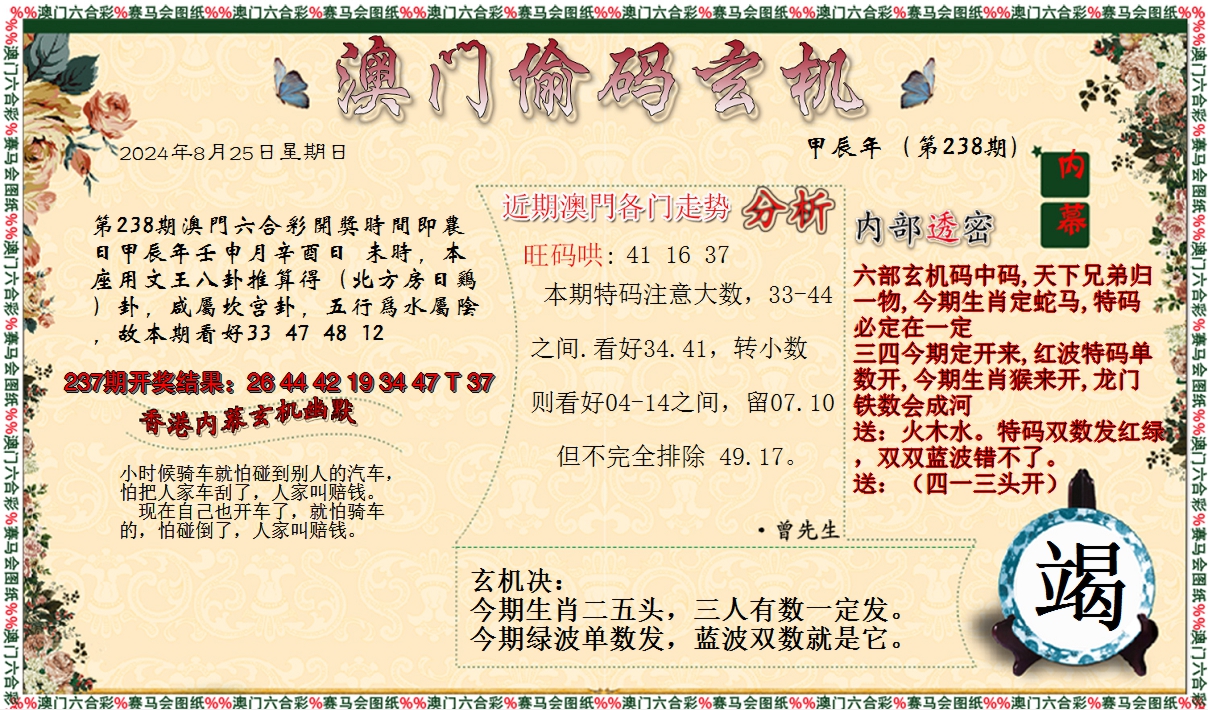 %%澳门六合彩%赛马会图纸%%澳门六合彩%赛马会图纸%%澳门六合彩%赛马会图纸%%澳门六合彩%赛马会图纸%%澳门六合彩%赛马会图纸%%澳门六合彩%赛马会图纸%%
澳门偷码玄机
2024年8月25日星期日
甲辰年（第238期）
第238期澳門六合彩開獎時間即農
日甲辰年壬申月辛酉日 未時，本
座用文王八卦推算得（北方房日鷄
）卦，咸屬坎宫卦，五行爲水屬陰
，故本期看好33 47 48 12
237期开奖结果：26 44 42 19 34 47 T 37
香港内幕玄机幽默
小时候骑车就怕碰到别人的汽车，
怕把人家车刮了，人家叫赔钱。
现在自己也开车了，就怕骑车
的，怕碰倒了，人家叫赔钱。
近期澳門各门走势 分析
旺码哄: 41 16 37
本期特码注意大数，33-44
之间.看好34.41，转小数
则看好04-14之间，留07.10
但不完全排除 49.17。
·曾先生
内幕
内部透密
六部玄机码中码,天下兄弟归
一物,今期生肖定蛇马,特码
必定在一定
三四今期定开来,红波特码单
数开,今期生肖猴来开,龙门
铁数会成河
送：火木水。特码双数发红绿
，双双蓝波错不了。
送：（四一三头开）
玄机决：
今期生肖二五头，三人有数一定发。
今期绿波单数发，蓝波双数就是它。
竭
%%澳门六合彩%赛马会图纸%%澳门六合彩%赛马会图纸%%澳门六合彩%赛马会图纸%%澳门六合彩%赛马会图纸%%澳门六合彩%赛马会图纸%%澳门六合彩%赛马会图纸%%